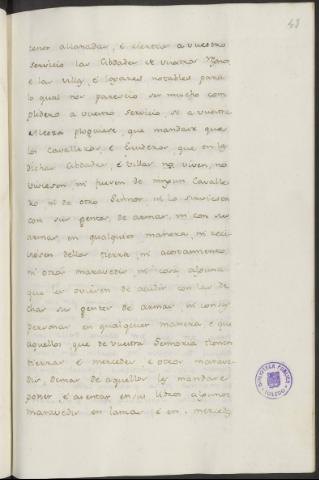 43
tener allanadas, é esentas a vuestro
servicio las Cibdades de vuestros Regnos
é las villas, é logares notables para
lo qual nos parescio ser mucho com
plidero a vuestro servicio, si a vuestra
Alteza ploguiere, que mandase que
los Cavalleros é Escuderos que en las
dichas Cibdades, é Villas viven, no
viviesen, ni fuesen de ningun Cavalle
ro ni de otro Señor, ni lo sirviesen
con sus gentes de armas, ni con sus
armas en qualquier manera, ni reci
viesen dellos tierra, ni acostamiento,
ni otros maravedis, ni cosa alguna
que les oviesen de acudir con las di
chas sus gentes de armas, ni con sus
personas en qualquier manera é que
aquellos que de vuestra Señoria tienen
tierras é mercedes é otros marave
dis, demas de aquellos les mandase
poner, é asentar en sus libros algunos
maravedis en lanzas é en mercedes
BIBLIOTECA PUBLICA
TOLEDO